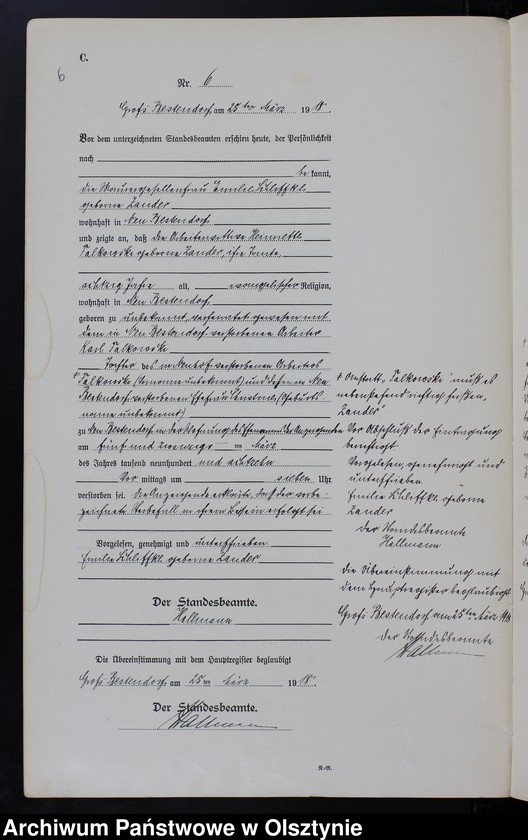 C.
6
Nr. 6
Groß Bestendorf, am 25ten März 1918.
Vor dem unterzeichneten Standesbeamten erschien heute, der Persönlichkeit
nach
be kannt,
die Maurergesellenfrau Emilie Schliffke
geborne Zander
wohnhaft in Neu Bestendorf
und zeigte an, daß die Arbeiterwittwe Henriette
Falkowske geborne Zander, ihre Tante,
achtzig Jahre alt, evangelischer Religion,
wohnhaft in Neu Bestendorf
geboren zu unbekannt, verheiratet gewesen mit
dem in Neu Bestendorf verstorbenen Arbeiter
Karl Falkowske
Tochter des in verstorbenen Arbeiters
+ Falkowske (Vorname unbekannt) und dessen in Neu
Bestendorf verstorbenen Ehefrau (Geburts
name unbekannt)
zu Neu Bestendorf in der Wohnung des Ehemannes der Anzeigenden
am fünf und zwanzigs ten März
des Jahres tausend neunhundert und achtzehn
Vor mittags um sieben Uhr
verstorben sei. Die Anzeigende erklärte, daß der vorbe-
zeichnete Sterbefall in ihrem Beisein erfolgt sei
Vorgelesen, genehmigt und unterschrieben
Emilie Schliffke geborne Zander
Der Standesbeamte.
Hallmann
Die Übereinstimmung mit dem Hauptregister beglaubigt
Groß Bestendorf, am 25ten März 1918.
Der Standesbeamte.
Hallmann
+ Anstatt "Falkowske" muß es
nebenstehend richtig heißen,
"Zander"
Vor Abschluß der Eintragung
berichtigt.
Vorgelesen, genehmigt und
unterschrieben
Emilie Schliffke geborne
Zander
Der Standesbeamte
Hallmann
Die Übereinstimmung mit
dem Hauptregister beglaubigt
Groß Bestendorf, am 25ten März 1918
Der Standesbeamte
Hallmann
R.-R.
Archiwum Państwowe w Olsztynie